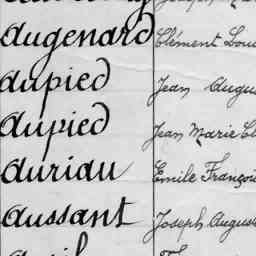 Augenard Clément Loui
Aupied Jean Augu
Aupied Jean Marie Cl
Auriau Emile Françoi
Aussant Joseph Augus